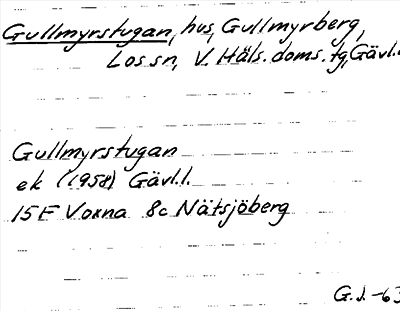 Gullmyrstugan, hus, Gullmyrberg,
Los sn, V. Häls. doms. tg, Gävl.
Gullmyrstugan
ek (1958) Gävl.l.
15 F Voxna 8c Nätsjöberg
G.J. -63